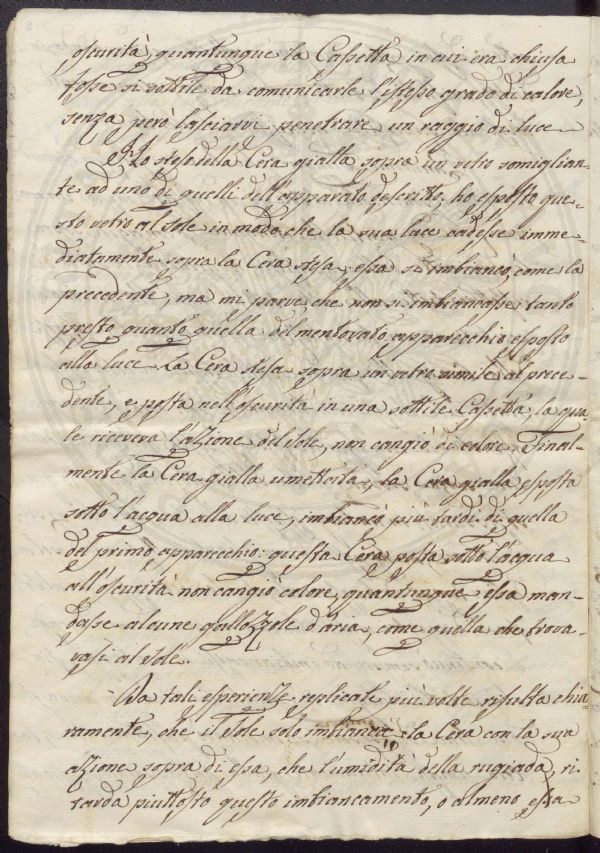 oscurità, quantunque la Cassetta in cui era chiusa
fosse si sottile da comunicarle l'istesso grado di calore,
senza però lasciarvi penetrare un raggio di luce
Ho steso della Cera gialla sopra un vetro somiglian-
te ad uno di quelli dell'apparato descritto, ho esposto que-
sto vetro al sole in modo che la sua luce cadesse imme-
diatamente sopra la Cera stesa; essa si imbiancò, come la
precedente, ma mi parve che non si imbiancasse tanto
presto quanto quella del mentovato apparecchio esposto
alla luce. La Cera stesa sopra un vetro simile al prece-
dente, e posta nell'oscurità in una sottile Cassetta, la qua-
le riceveva l'azione del Sole, non cangiò di colore. Final-
mente la Cera gialla umettata, la Cera gialla esposta
sotto l'acqua alla luce, imbiancò più tardi di quella
del primo apparecchio: questa Cera posta sotto l'acqua
all'oscurità non cangiò colore, quantunque essa man-
dasse alcune gallozzole d'aria, come quella che trova-
vasi al Sole.
Da tali esperienze replicate più volte risulta chia-
ramente, che il Sole solo imbianca la Cera con la sua
azione sopra di essa, che l'umidità della rugiada, ri-
tarda piuttosto questo imbiancamento, o almeno essa